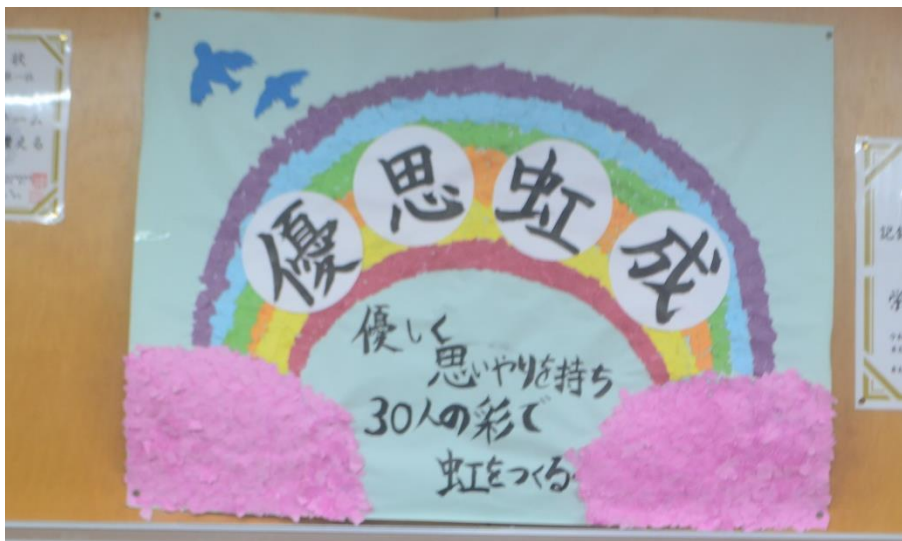 優思虹成
優しく
思いやりを持ち
30人の彩で
虹をつくる
状
える
記録
学